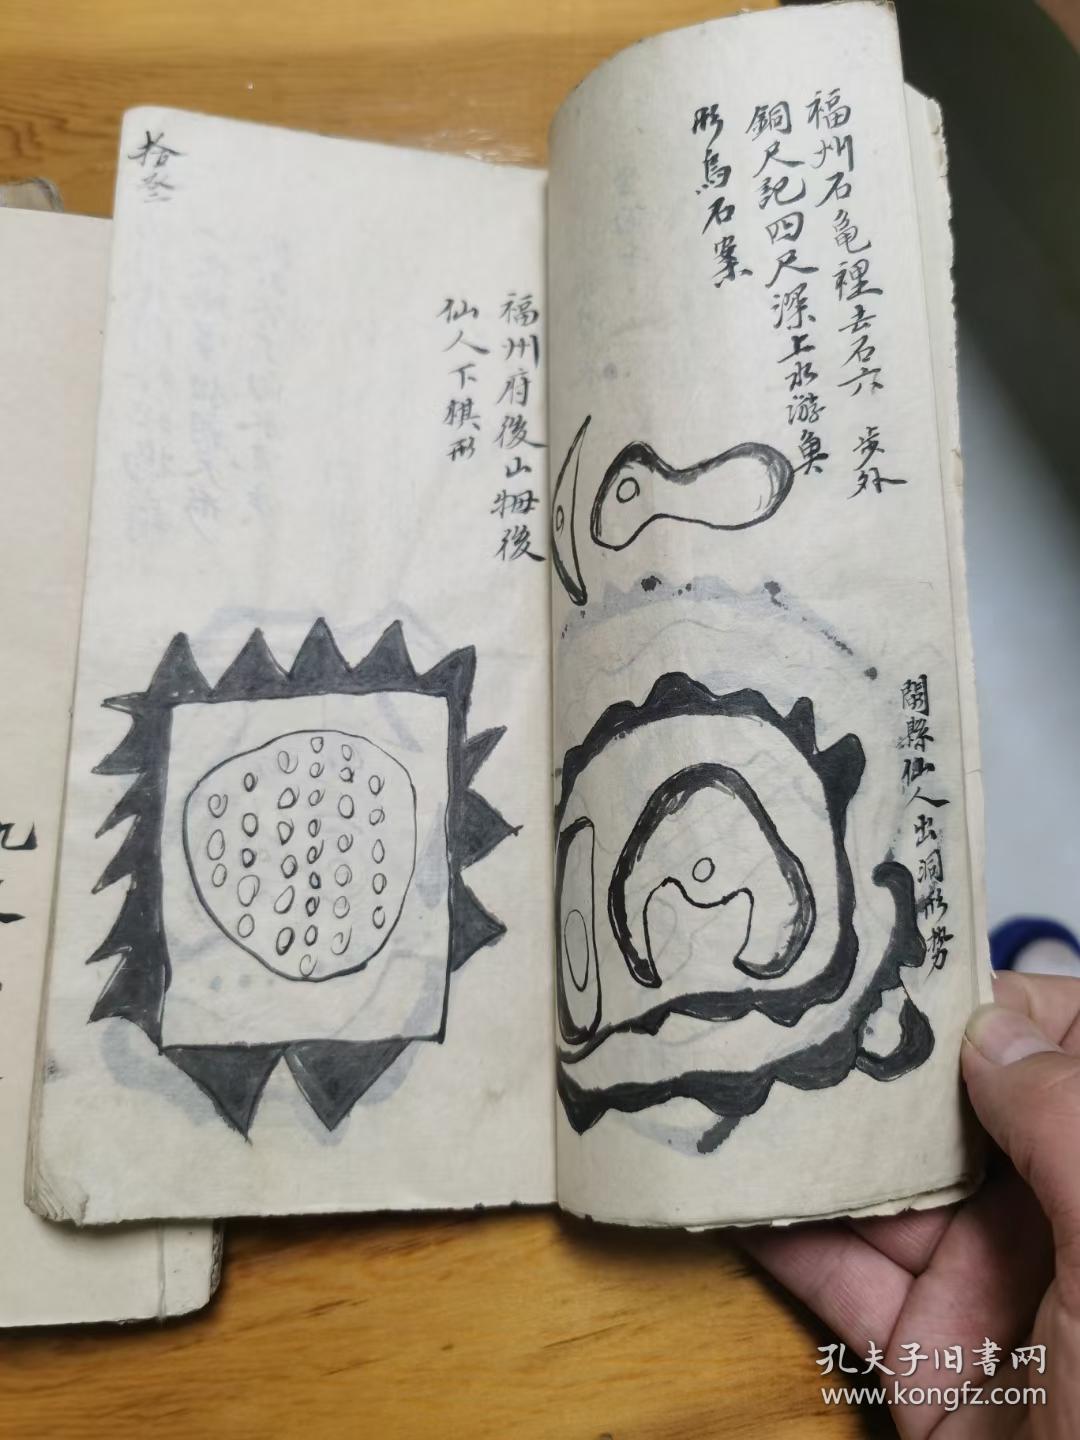 福州石龟裡去石六步外
銅尺記四尺深上水游魚
形烏石案
閩縣仙人出洞形势
福州府後山後
仙人下棋形
拾叁
九
孔夫子旧書网
www.kongfz.com